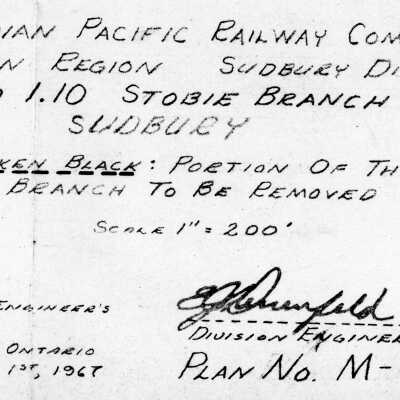 IAN PACIFIC RAILWAY COM
N REGION SUDBURY DI
1.10 STOBIE BRANCH
SUDBURY
KEN BLACK: PORTION OF TH
BRANCH TO BE REMOVED
SCALE 1" = 200'
ENGINEER'S
DIVISION ENGINEER
ONTARIO
1ST, 1967
PLAN NO. M-